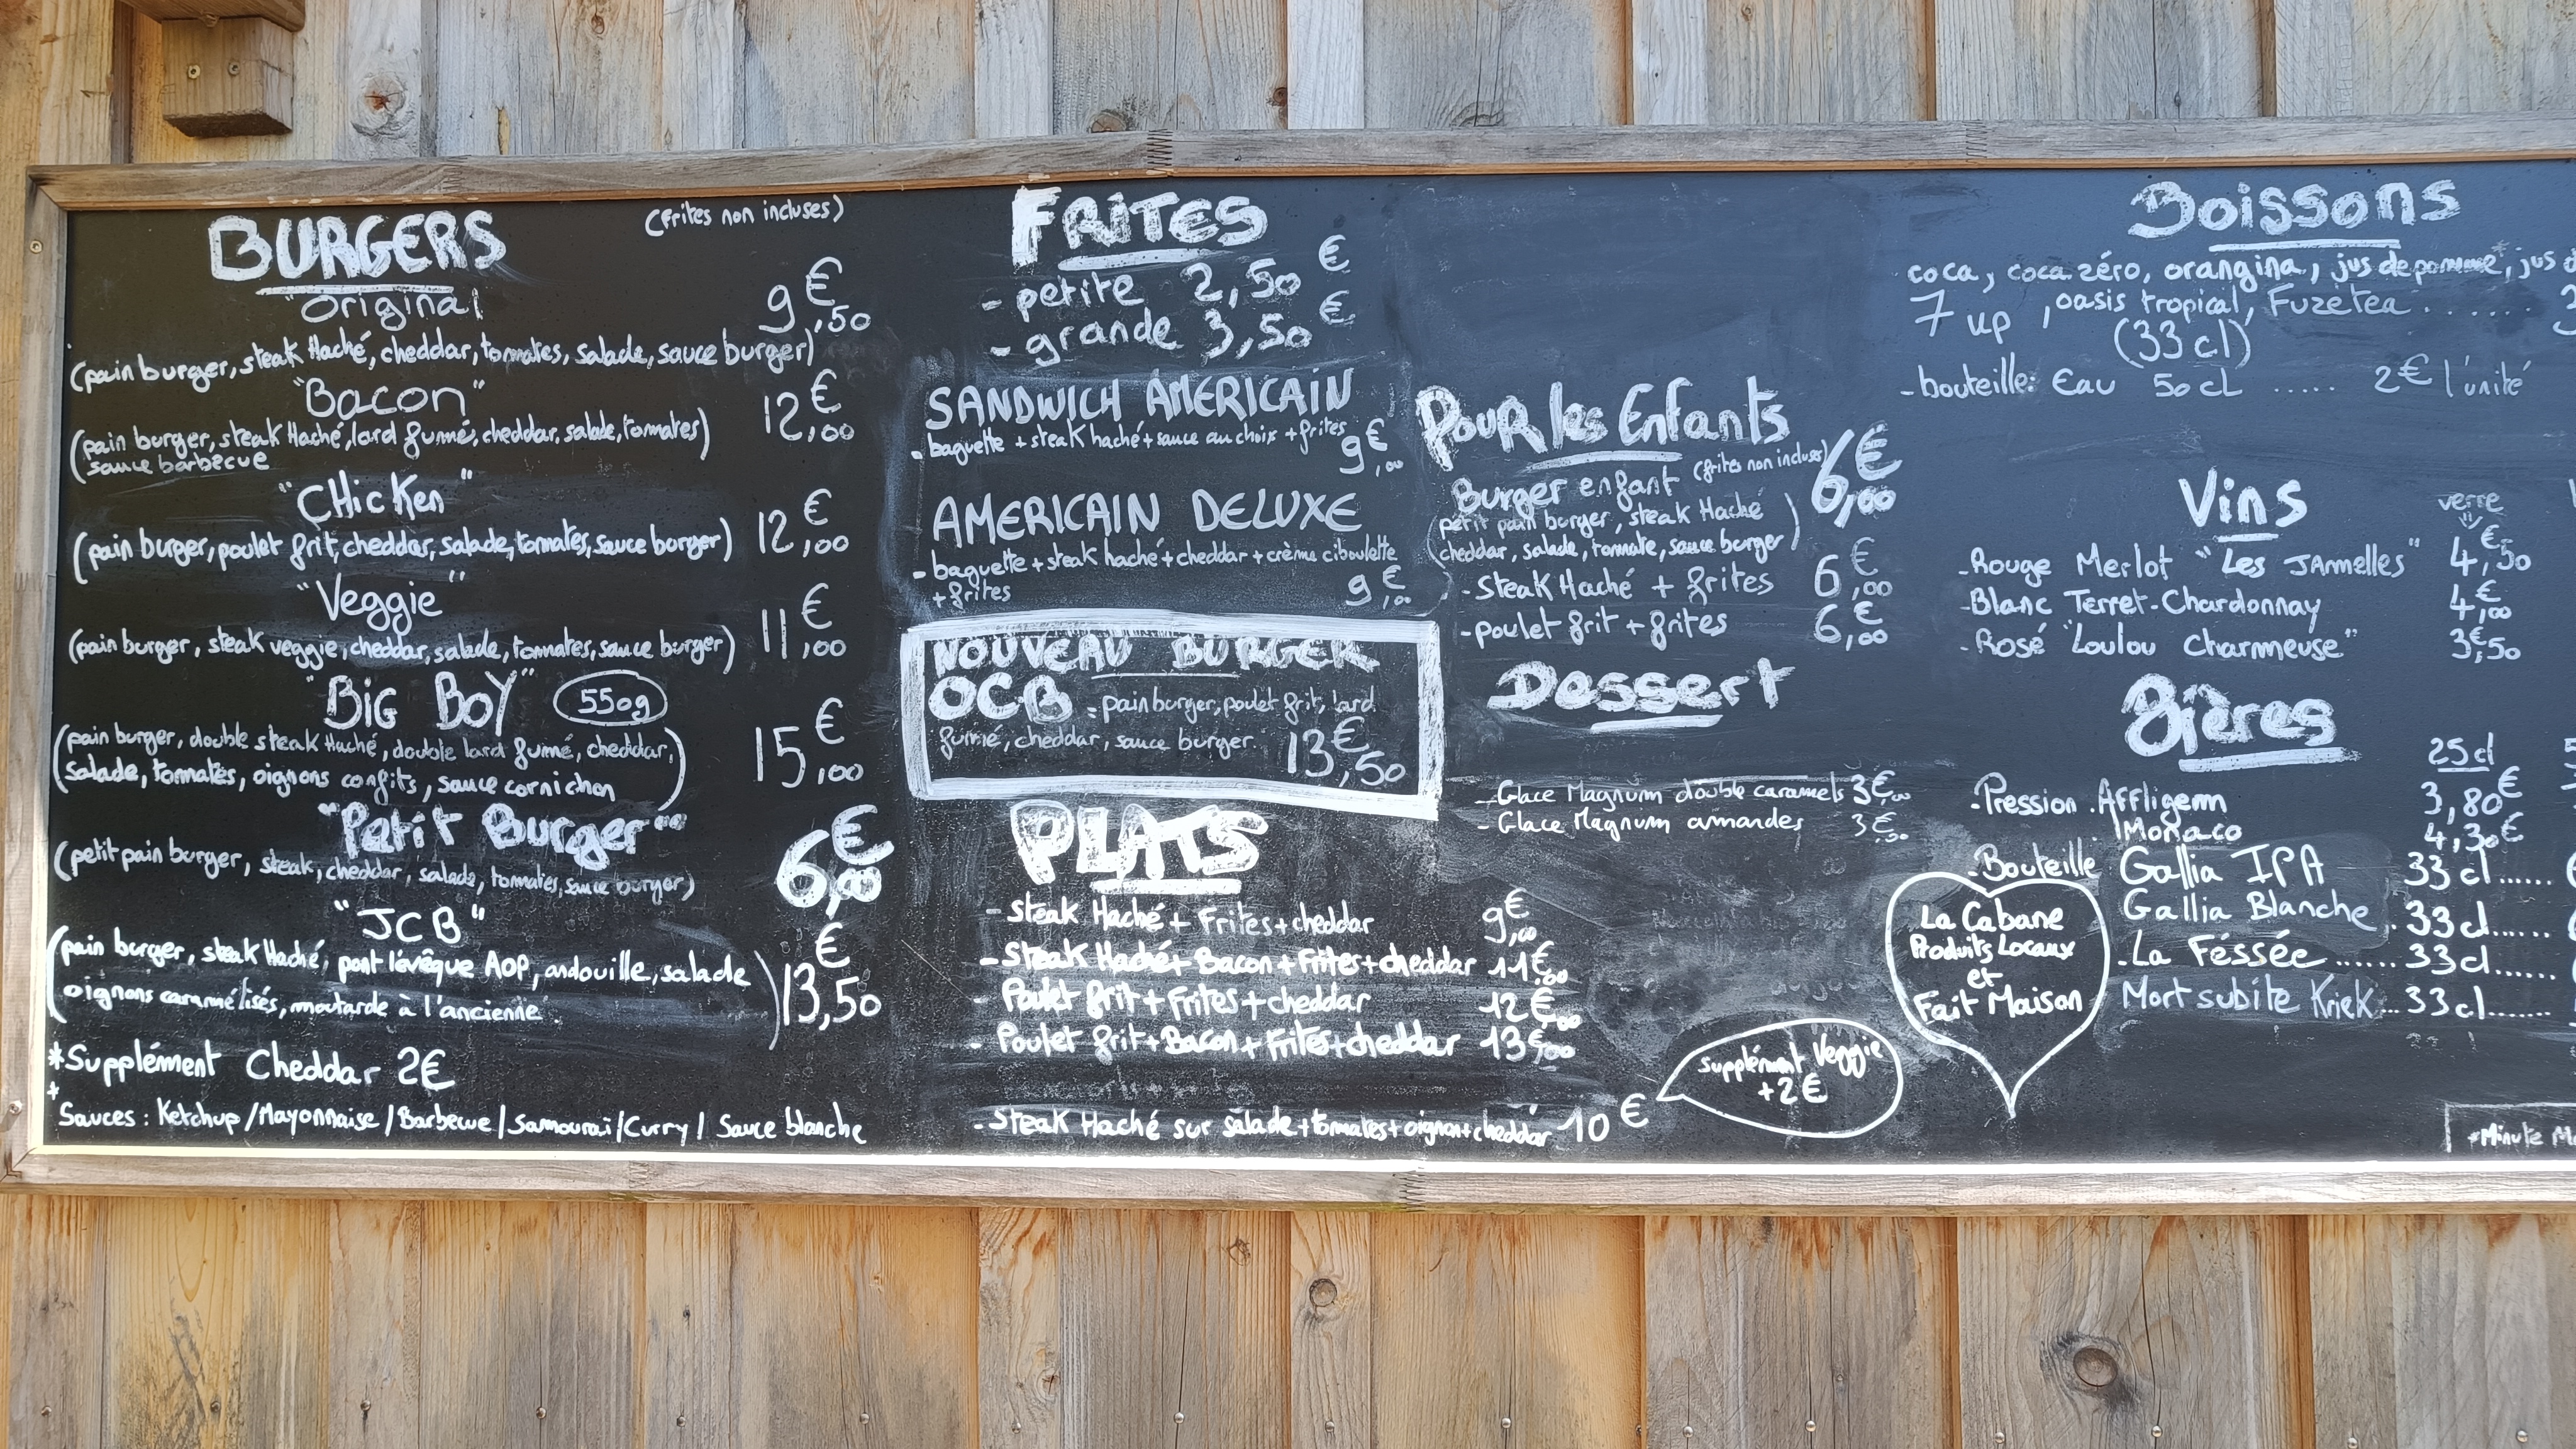 BURGERS (frites non incluses)
"Original" 9€,50
(pain burger, steak Haché, cheddar, tomates, salade, sauce burger)
"Bacon" 12€,00
(pain burger, steak Haché, lard fumé, cheddar, salade, tomates)
sauce barbecue
"CHicKen" 12€,00
(pain burger, poulet frit, cheddar, salade, tomates, sauce burger)
"Veggie" 11€,00
(pain burger, steak veggie, cheddar, salade, tomates, sauce burger)
"BiG BoY" 550g 15€,00
(pain burger, double steak Haché, double lard fumé, cheddar,
salade, tomates, oignons confits, sauce cornichon)
"Petit Burger" 6€,00
(petit pain burger, steak, cheddar, salade, tomates, sauce burger)
"JCB" 13€,50
(pain burger, steak Haché, pont lévêque AOP, andouille, salade
oignons caramélisés, moutarde à l'ancienne)
*Supplément Cheddar 2€
* Sauces : Ketchup / Mayonnaise / Barbecue / Samouraï / Curry / Sauce blanche
FRiTES
- petite 2,50€
- grande 3,50€
SANDWICH AMERICAIN
- baguette + steak haché + sauce au choix + frites
9€,00
AMERICAIN DELUXE
- baguette + steak haché + cheddar + crème ciboulette
+ frites 9€,00
NOUVEAU BURGER
OCB : pain burger, poulet frit, lard
fumé, cheddar, sauce burger. 13€,50
PLATS
- Steak Haché + Frites + cheddar 9€,00
- Steak Haché + Bacon + Frites + cheddar 11€,00
- Poulet frit + Frites + cheddar 12€,00
- Poulet frit + Bacon + Frites + cheddar 13€,00
- Steak Haché sur salade + tomates + oignon + cheddar 10€
Supplément Veggie
+2€
Pour les Enfants
Burger enfant (frites non incluses) 6€,00
(petit pain burger, steak Haché
cheddar, salade, tomate, sauce burger)
- Steak Haché + frites 6€,00
- poulet frit + frites 6€,00
Dessert
- Glace Magnum double caramels 3€,00
- Glace Magnum amandes 3€,00
Boissons
coca, coca zéro, orangina, jus de pomme*, jus d
7 up, oasis tropical, Fuzetea .......
(33 cl)
- bouteille: Eau 50 cL ..... 2€ l'unité
Vins verre
- Rouge Merlot "Les JAmelles" 4€,50
- Blanc Terret-Chardonnay 4€,00
- Rosé "Loulou Charmeuse" 3€,50
Bières
25 cl
- Pression . Affligem 3,80€
. Monaco 4,30€
- Bouteille Gallia IPA 33 cl ......
Gallia Blanche . 33 cl ......
. La Féssée ...... 33 cl ......
Mort subite Kriek ... 33 cl .......
La Cabane
Produits Locaux
et
Fait Maison
*Minute